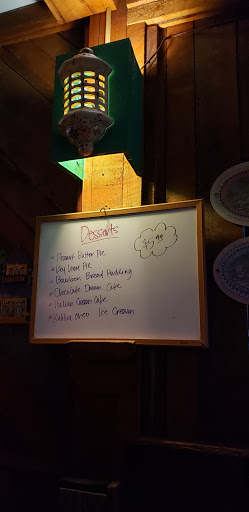 Desserts
$5.99
• Peanut Butter Pie
• Key Lime Pie
• Bourbon Bread Pudding
• Chocolate Dream Cake
• Italian Cream Cake
• Kahlua over Ice Cream